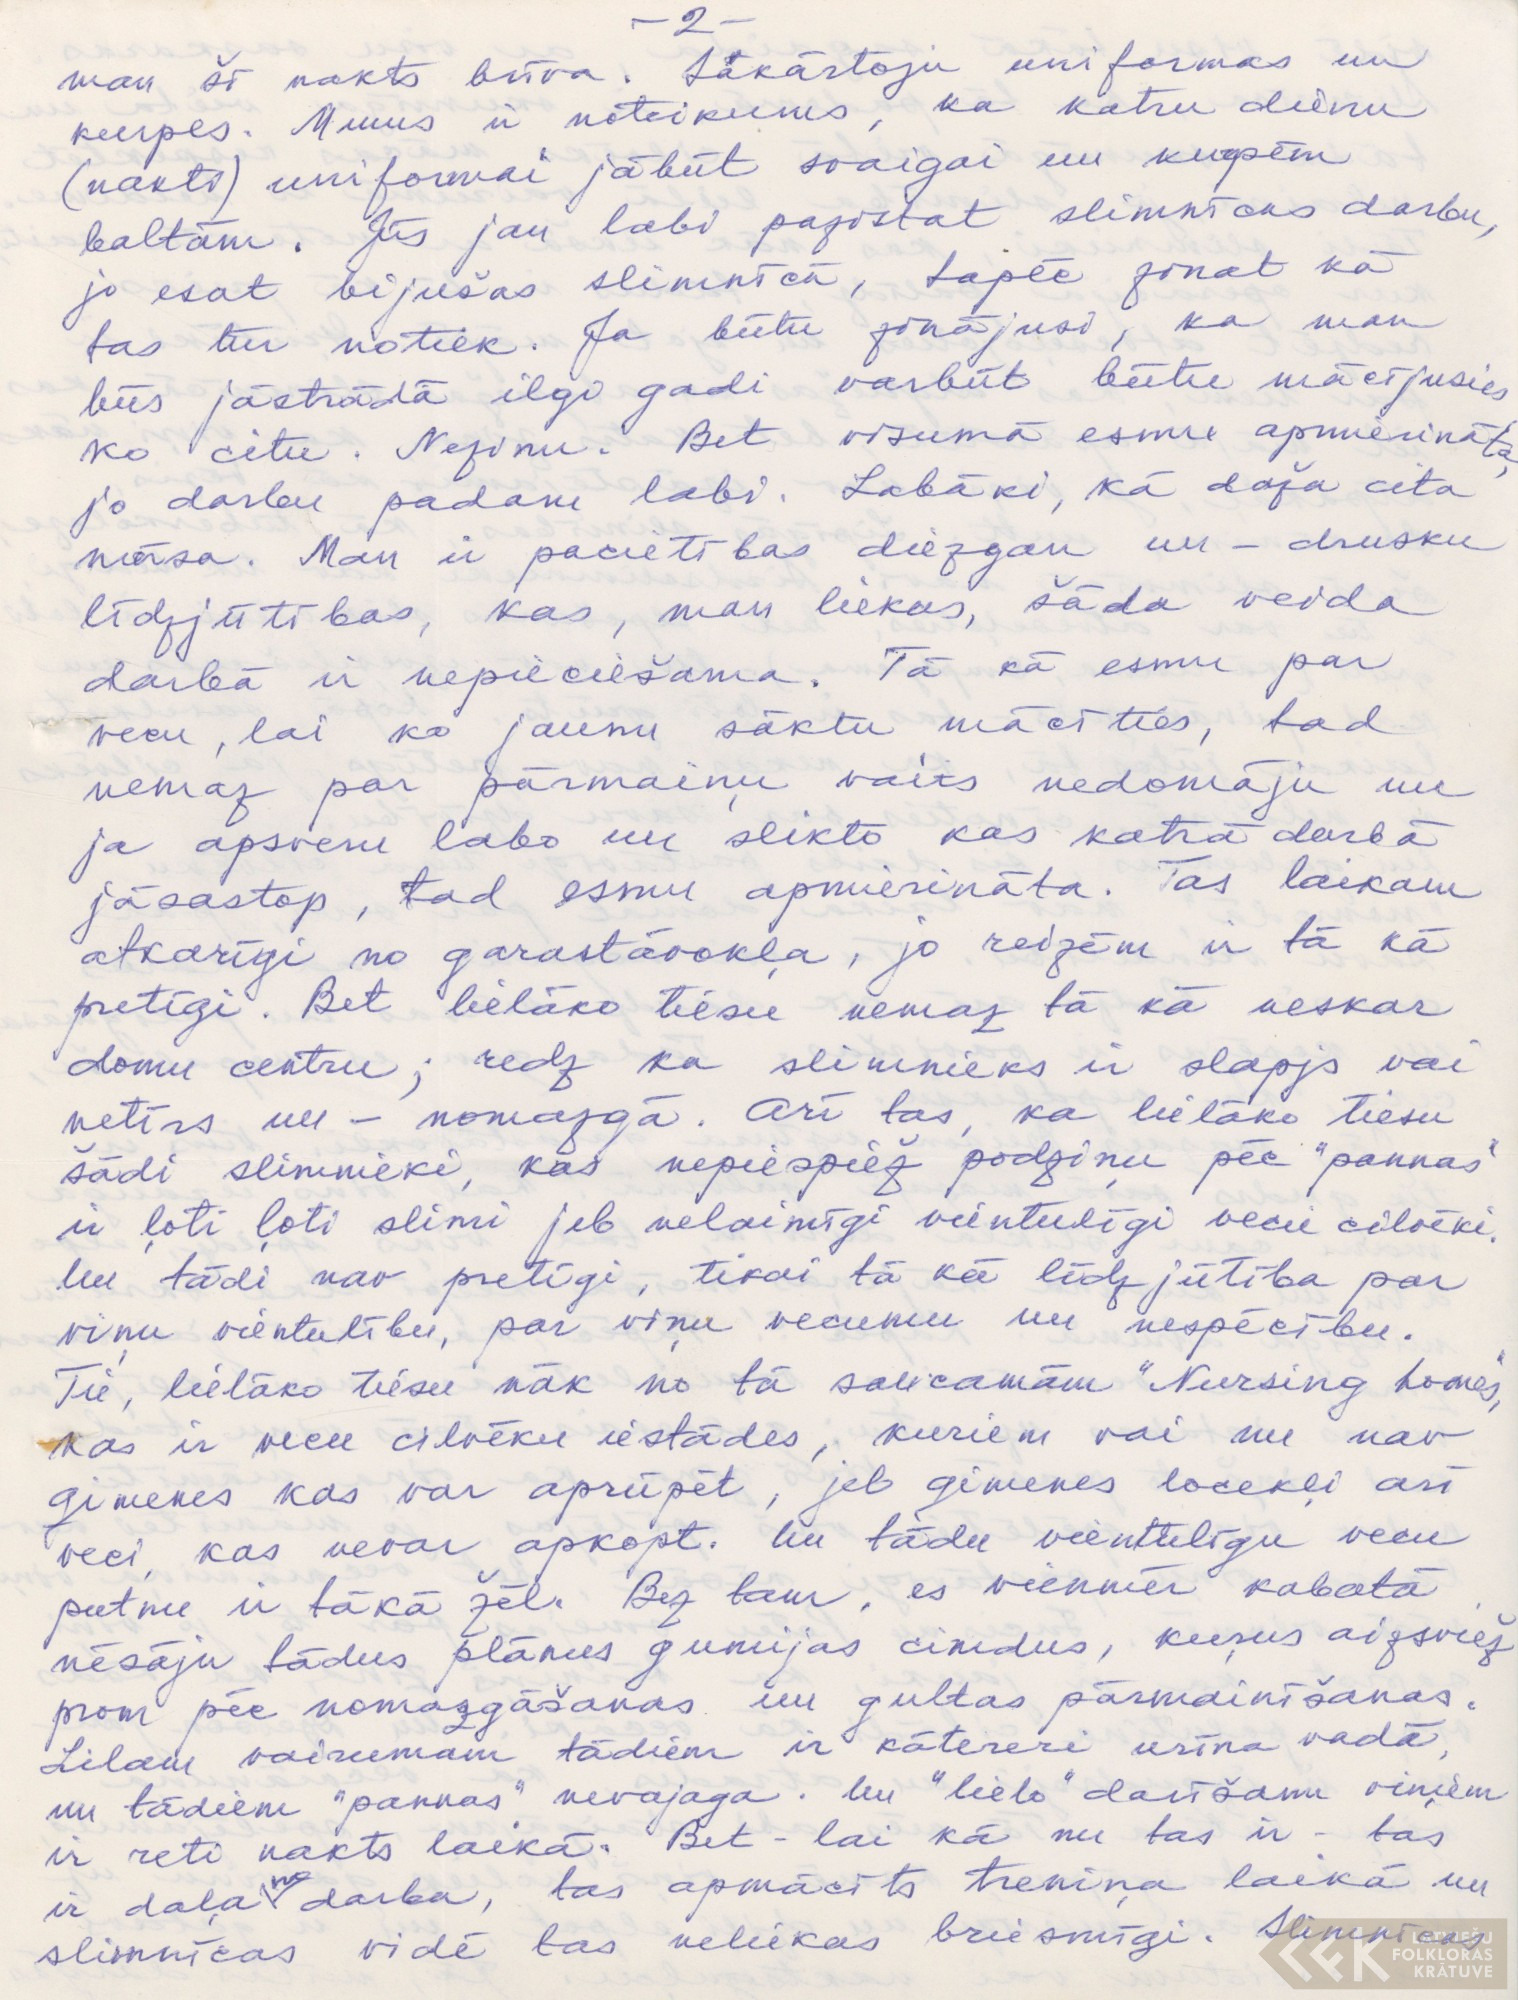 - 2 -
man šī nakts brīva. Sakārtoju uniformas un
kurpes. Mums ir noteikums, ka katru dienu
(nakti) uniformai jābūt svaigai un kurpēm
baltām. Jūs jau labi pazīstat slimnīcas darbu,
jo esat bijušas slimnīcā, tapēc zinat kā
tas tur notiek. Ja būtu zinājusi, ka man
būs jāstrādā ilgi gadi varbūt būtu mācījusies
ko citu. Nezinu. Bet visumā esmu apmierināta,
jo darbu padaru labi. Labāki, kā daža cita
māsa. Man ir pacietības diezgan un - drusku
līdzjūtības, kas, man liekas, šāda veida
darbā ir nepieciešama. Tā kā esmu par
vecu, lai ko jaunu sāktu mācīties, tad
nemaz par pārmaiņu vairs nedomāju un
ja apsveru labo un slikto kas katrā darbā
jāsastop, tad esmu apmierināta. Tas laikam
atkarīgi no garastāvokļa, jo reizēm ir tā kā
pretīgi. Bet lielāko tiesu nemaz tā kā neskar
domu centru; redz ka slimnieks ir slapjs vai
netīrs un - nomazgā. Arī tas, ka lielāko tiesu
šādi slimnieki, kas nepiespiež podziņu pēc "pannas"
ir ļoti ļoti slimi jeb nelaimīgi vientulīgi veci cilvēki.
Un tādi nav pretīgi, tikai tā kā līdzjūtība par
viņu vientulību, par viņu vecumu un nespēcību.
Tie, lielāko tiesu nāk no tā saucamām "Nursing homes",
kas ir vecu cilvēku iestādes, kuriem vai nu nav
ģimenes kas var aprūpēt, jeb ģimenes locekļi arī
veci, kas nevar apkopt. Un tādu vientulīgu vecu
putnu ir tākā žēl. Bez tam, es vienmēr kabatā
nēsāju tādus plānus gumijas cimdus, kuŗus aizsviež
prom pēc nomazgāšanas un gultas pārmainīšanas.
Lielam vairumam tādiem ir kātereri urīna vadā,
un tādiem "pannas" nevajaga. Un "lielo" darīšanu viņiem
ir reti nakts laikā. Bet - lai kā nu tas ir - tas
ir daļa no darba, tas apmācīts treniņa laikā un
slimnīcas vidē tas neliekas briesmīgi. Slimnīcas
LATVIEŠU
FOLKLORAS
KRĀTUVE